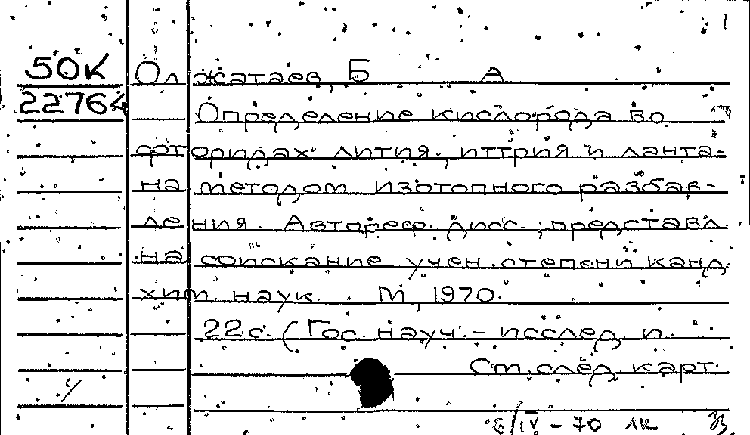 50К
22764
Олжатаев, Б А
Определение кислорода во
фторидах лития, иттрия и ланта-
на методом изотопного разбав-
ления. Автореф. дисс., представл
на соискание учен. степени канд.
хим наук. М, 1970.
22с (Гос науч.-исслед. и.
См. след. карт.
8/IV-70